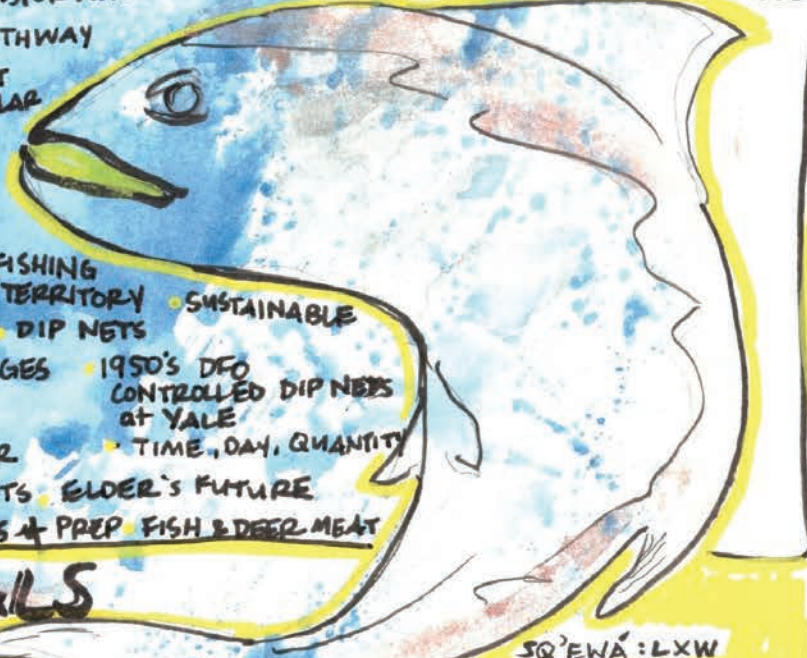 THWAY
FISHING
TERRITORY • SUSTAINABLE
• DIP NETS
GES • 1950'S DFO
CONTROLLED DIP NETS
at YALE
• TIME, DAY, QUANTITY
R
TS • ELDER'S FUTURE
S + PREP FISH & DEER MEAT
ILS
SQ'EWÁ:LXW